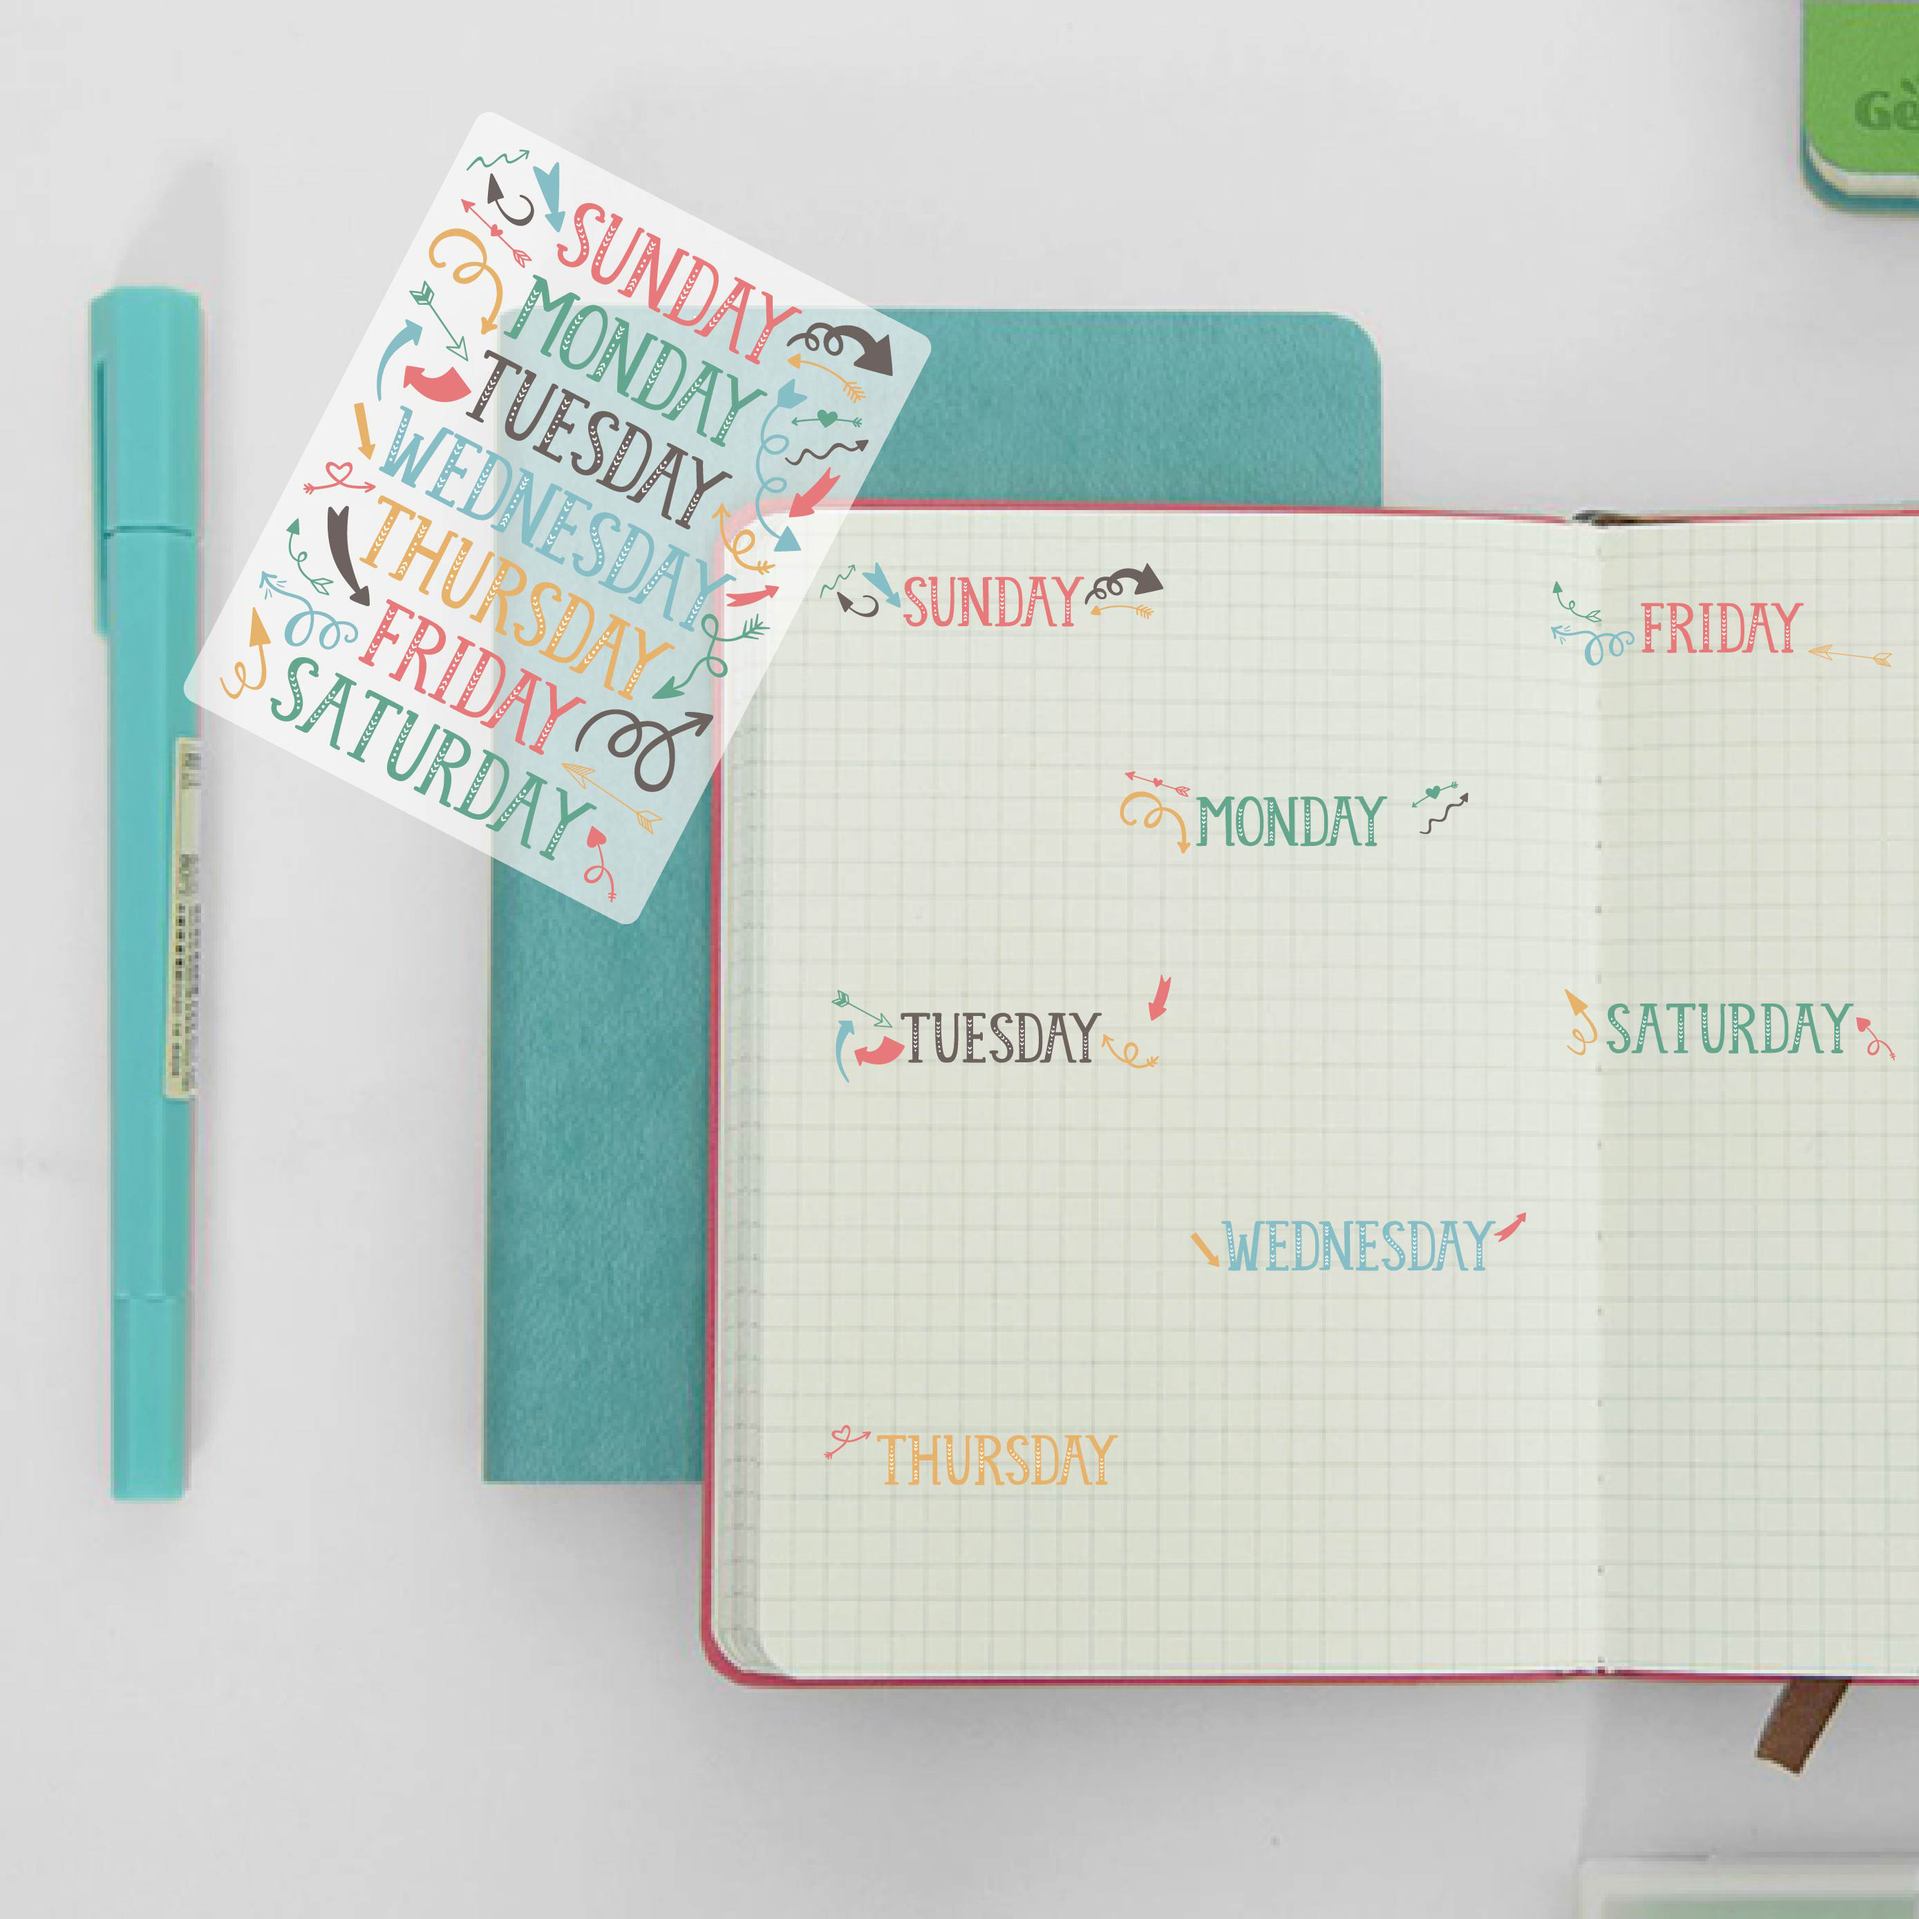 Gè
SUNDAY
MONDAY
TUESDAY
WEDNESDAY
THURSDAY
FRIDAY
SATURDAY
SUNDAY
MONDAY
TUESDAY
WEDNESDAY
THURSDAY
FRIDAY
SATURDAY